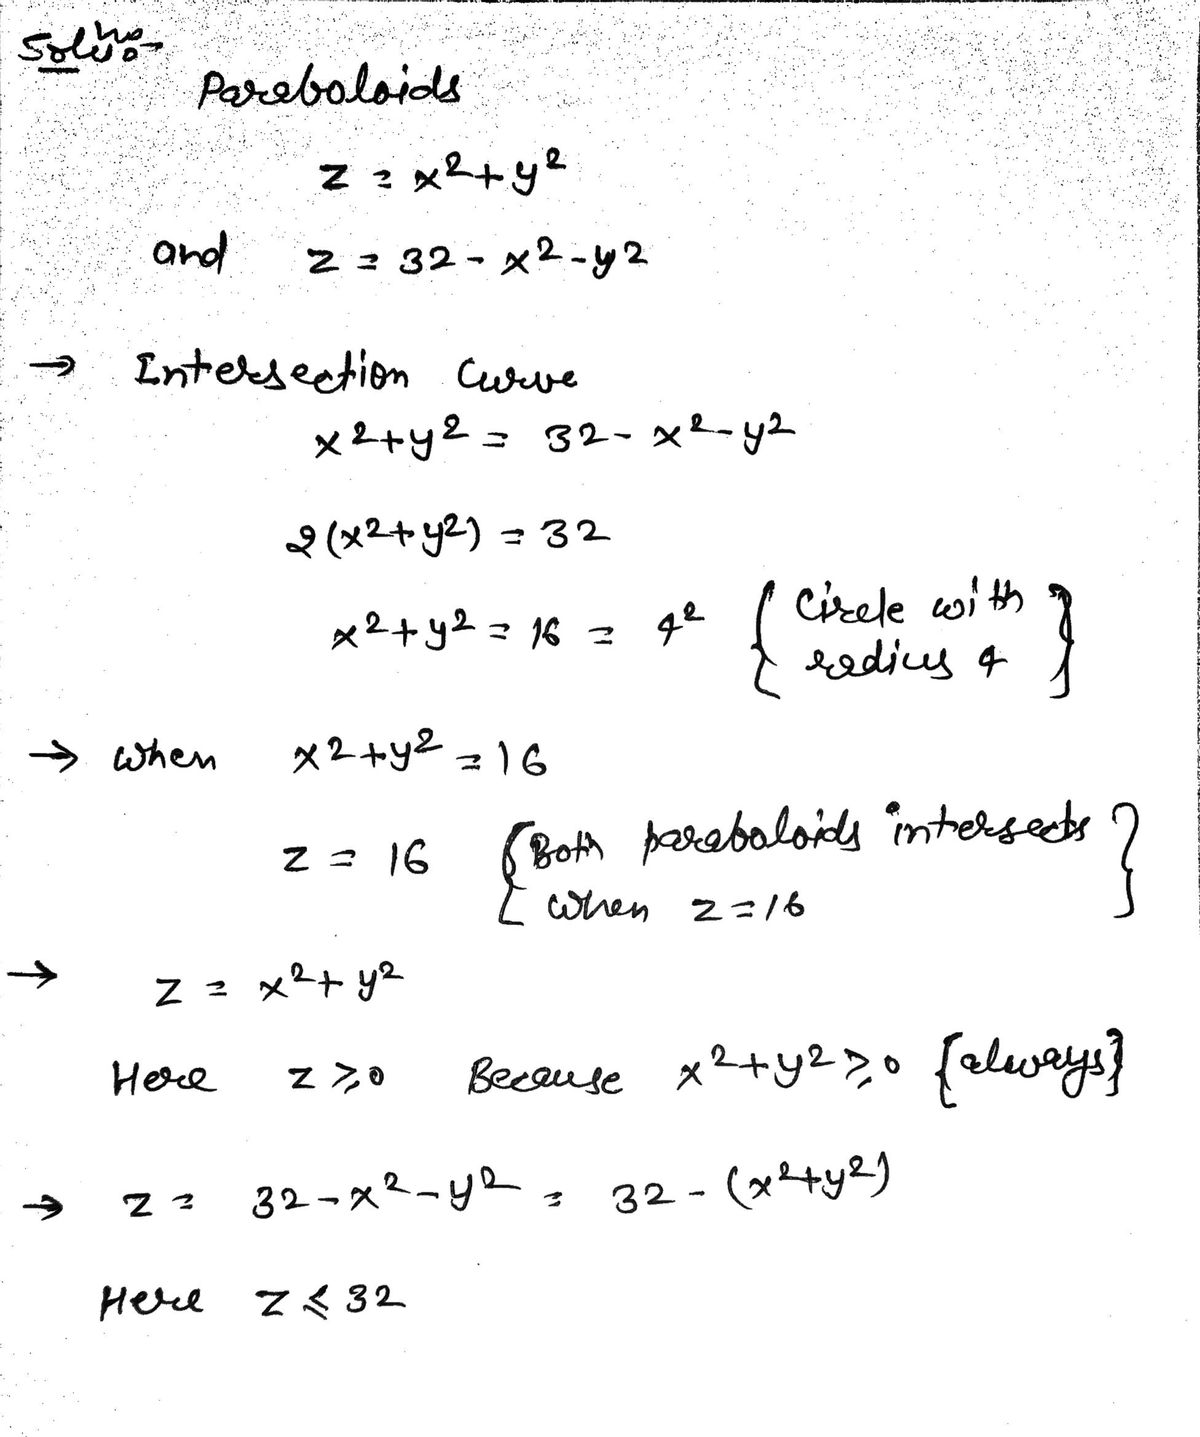 Soln:-
Paraboloids
z = x²+y²
and z = 32 - x²-y²
→ Intersection Curve
x²+y² = 32- x²-y²
2(x²+y²) = 32
x²+y² = 16 = 4² { Circle with
radius 4 }
→ when x²+y² = 16
z = 16 { Both paraboloids intersects
when z=16 }
→ z = x²+y²
Here z ⩾ 0 Because x²+y² ⩾ 0 {always}
→ z = 32-x²-y² = 32-(x²+y²)
Here z ⩽ 32